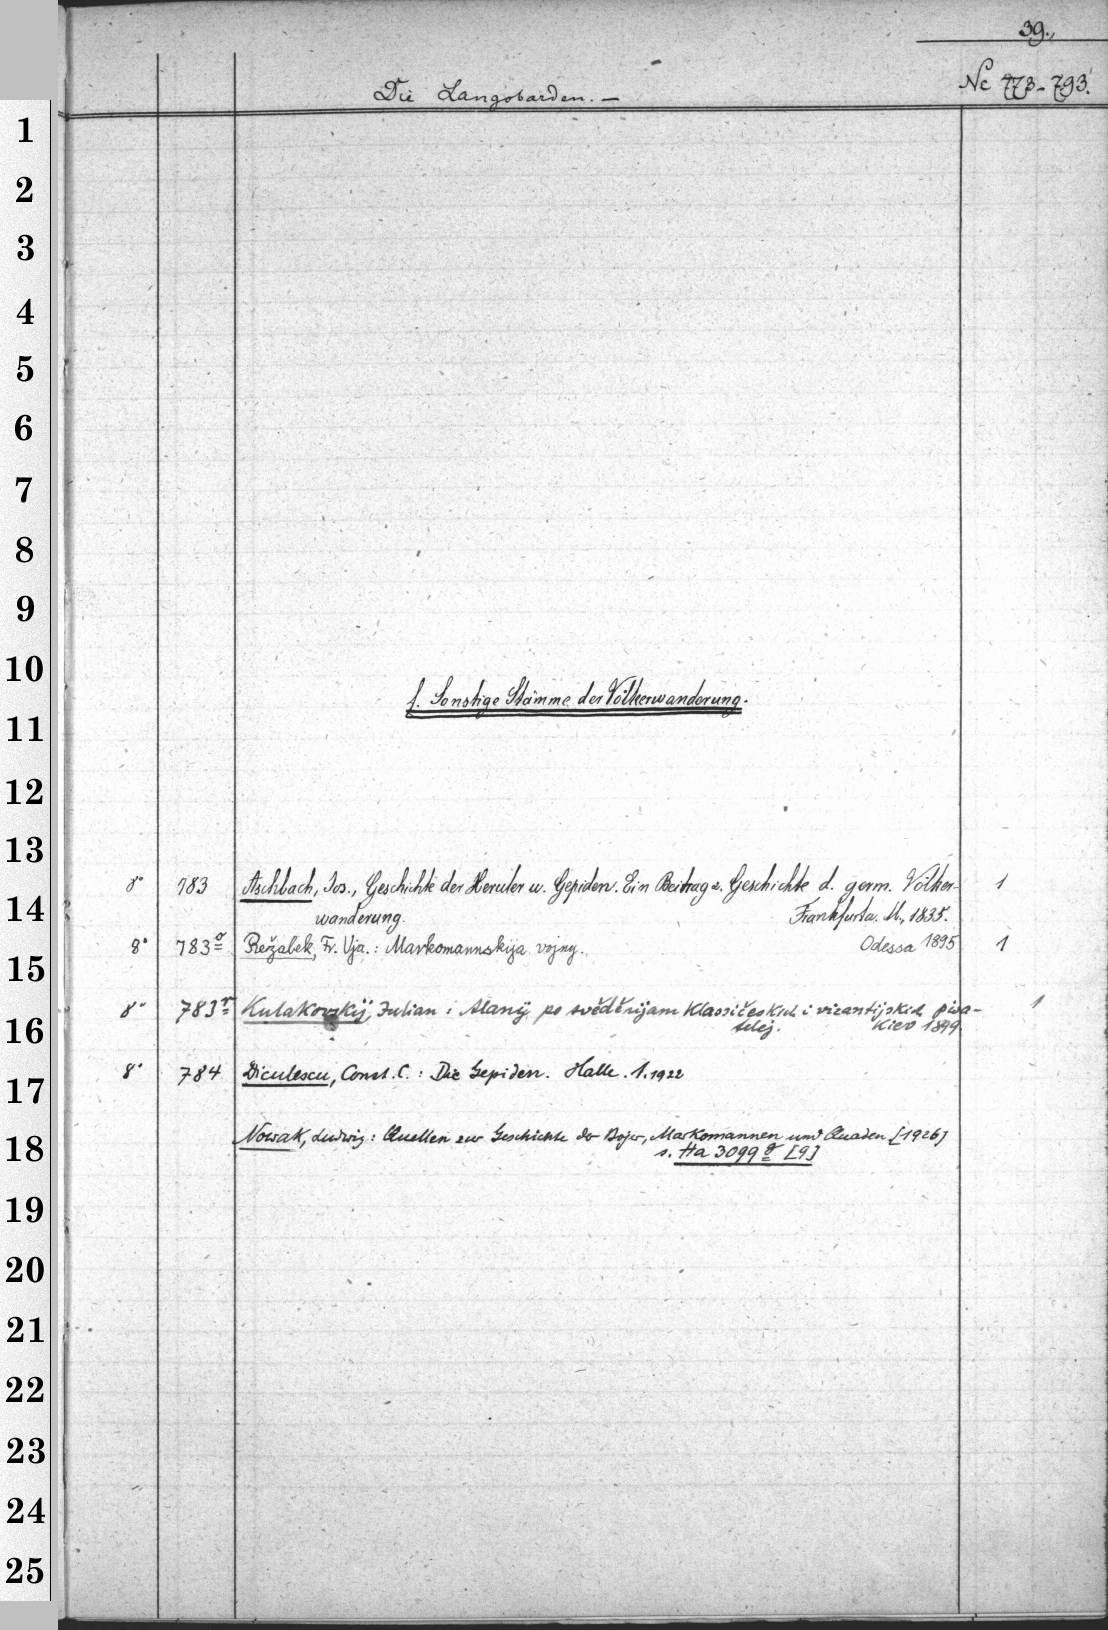 39.,
Die Langobarden. —
Nc 773-793.
1
2
3
4
5
6
7
8
9
10
f. Sonstige Stämme der Völkerwanderung.
11
12
13
8° 783 Aschbach, Jos., Geschichte der Heruler u. Gepiden. Ein Beitrag z. Geschichte d. germ. Völker- 1
14
wanderung. Frankfurt a. M., 1835.
8° 783 Režabek, Fr. Vja.: Markomannskija vojny. Odessa 1895 1
15
8° 783 Kulakovskij, Julian: Alany po svěděnijam klassičeskich i vizantijskich pisa- 1
16
telej. Kiev 1899.
8° 784 Diculescu, Const. C.: Die Gepiden. Halle. 1.1922
17
Nowak, Ludwig: Quellen zur Geschichte der Bojer, Markomannen und Quaden [1926]
18
s. Ha 3099 [9]
19
20
21
22
23
24
25